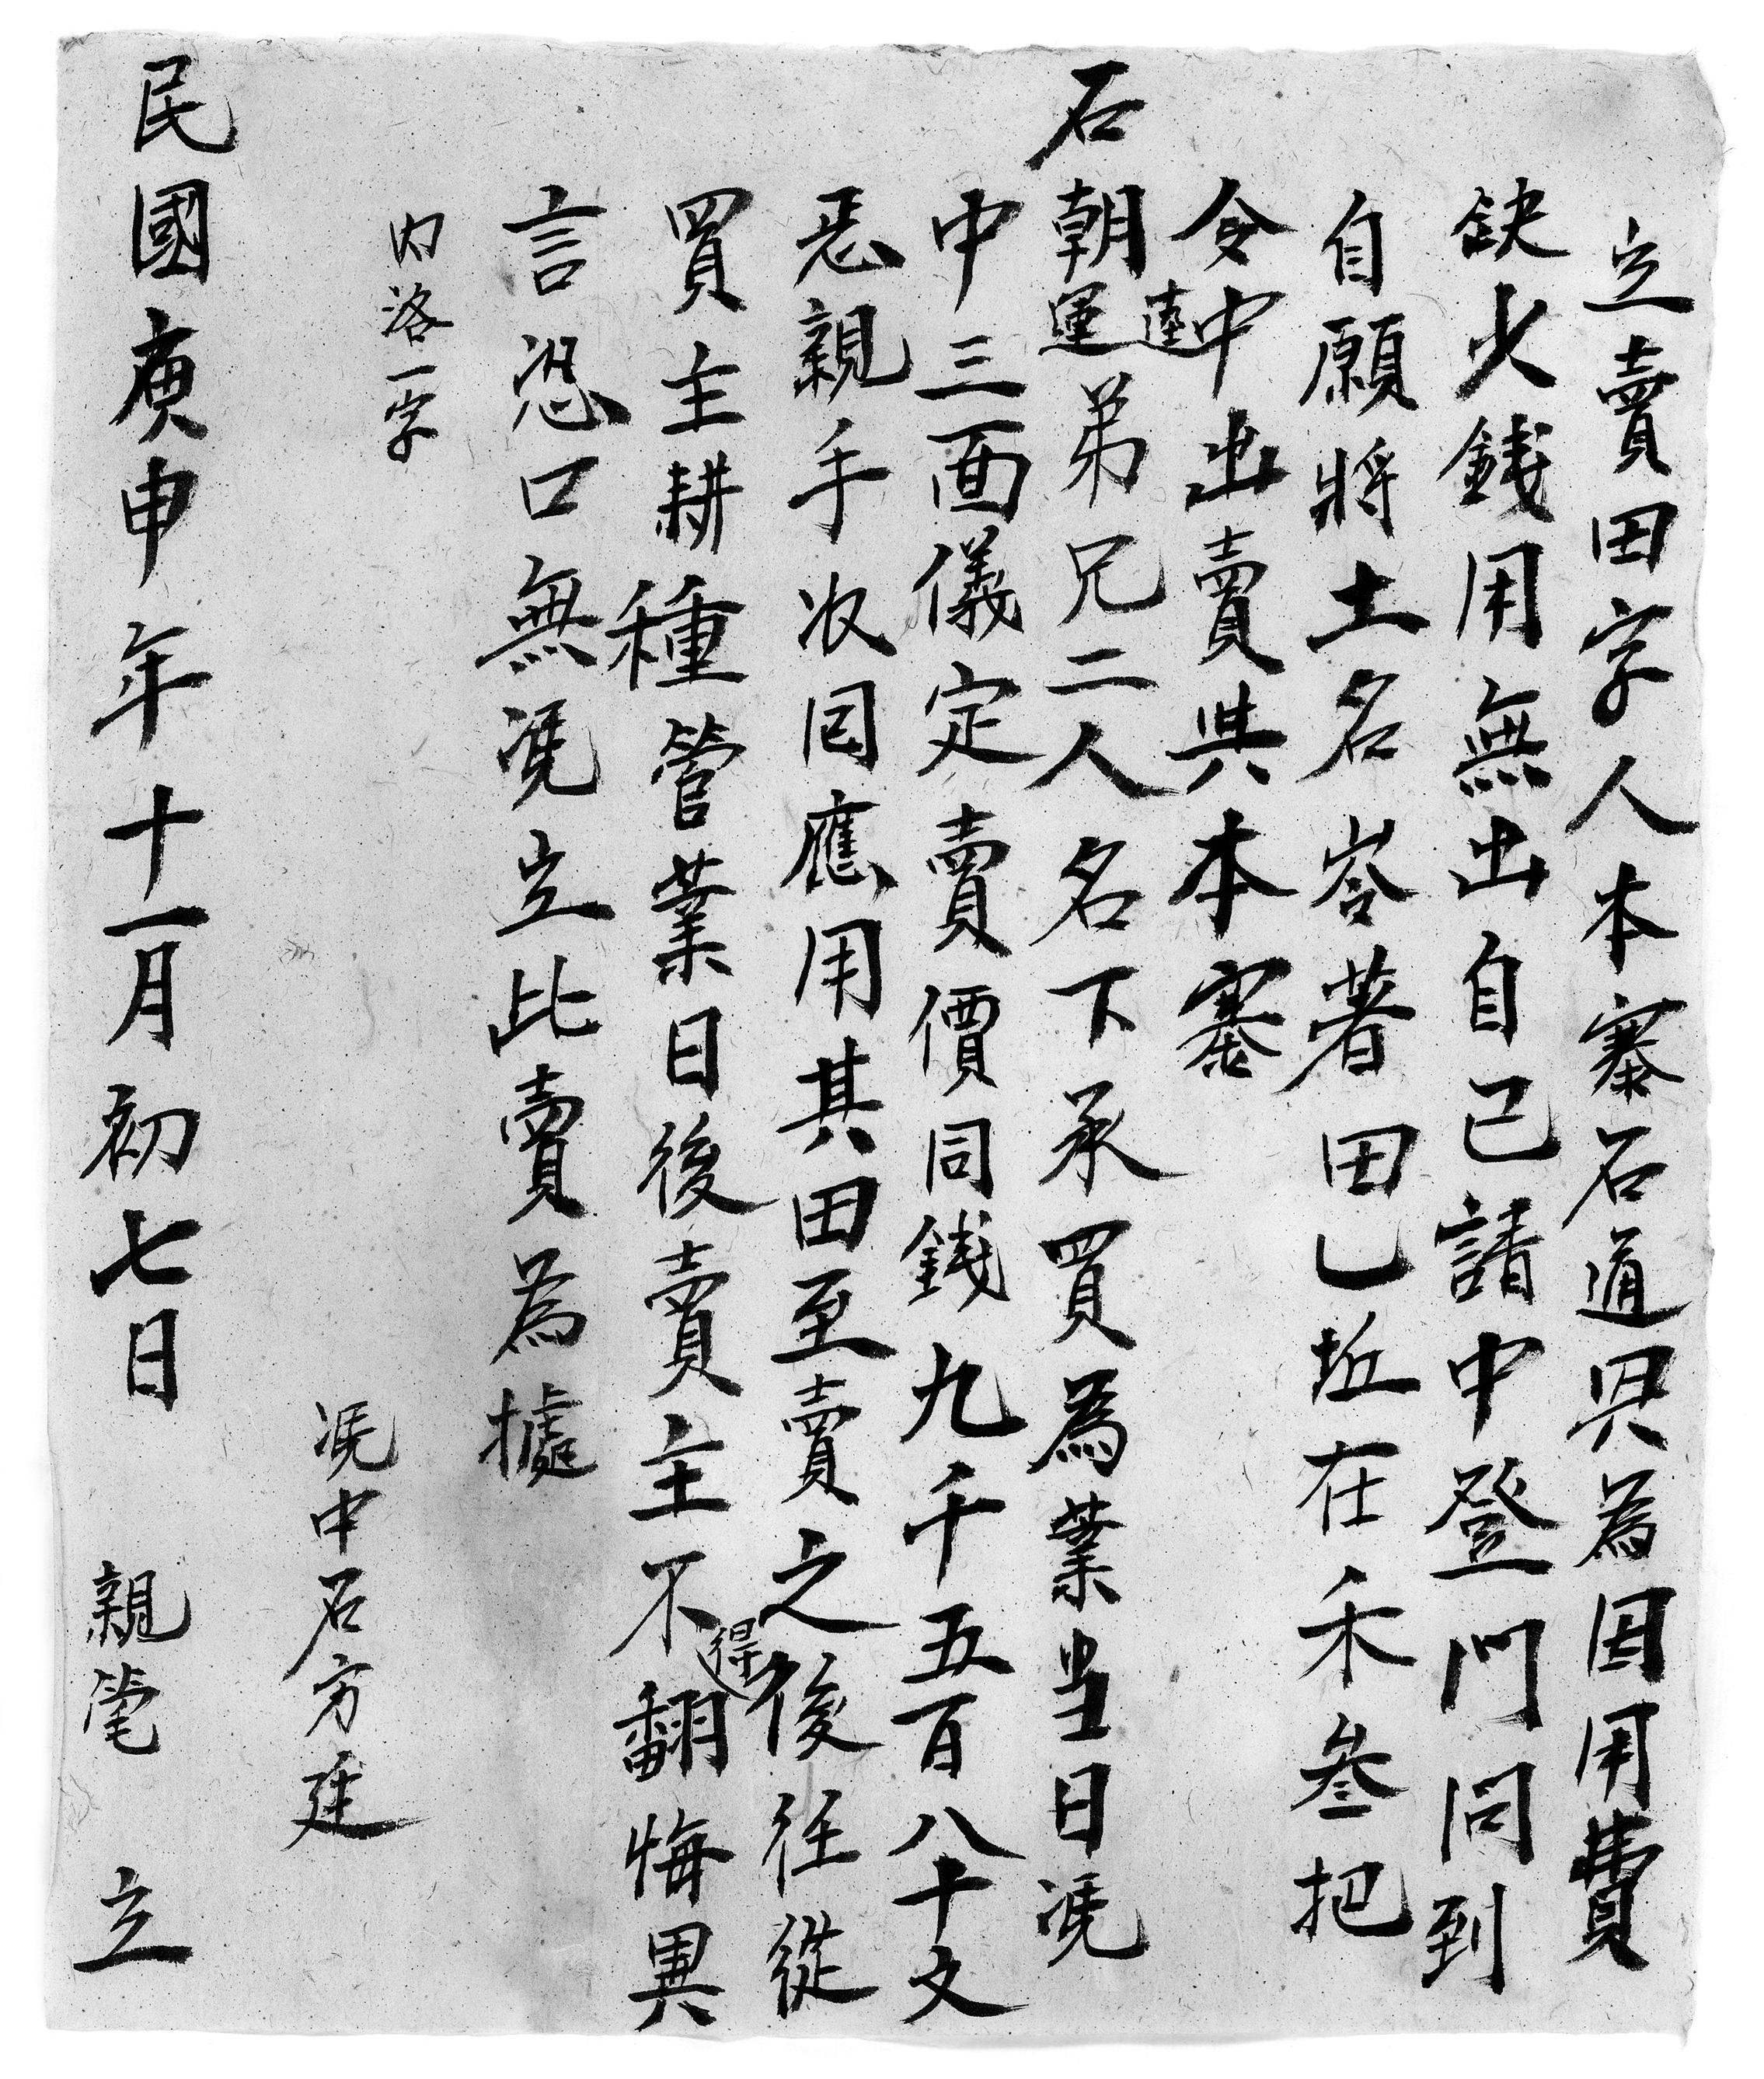 立賣田字人本寨石道具為因用費
缺少錢用無出自己請中登門問到
自願將土名岺著田乚坵在禾叁把
令中出賣與本寨
石朝運連弟兄二人名下承買為業当日凴
中三面儀定賣價同錢九千五百八十文
恶親手收囙應用其田至賣之後徃從
買主耕種管業日後賣主不得翻悔異
言恐口無凴立此賣為據
内洛一字
凴中石方廷
民國庚申年十一月初七日 親筆 立